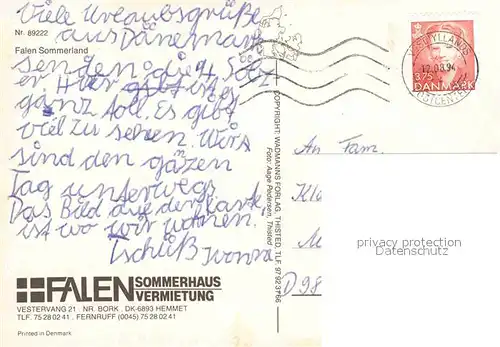 Viele Urlaubsgrüße
aus Dänemark
Nr. 89222
Falen Sommerland
senden die 4
er. Hier ist es
ganz toll. Es gibt
viel zu sehen. Wirs
sind den gäzen
Tag unterwegs
Das Bild auf der Karte,
ist wo wir wohnen.
Tschüß Ivonne
FALEN SOMMERHAUS
VERMIETUNG
VESTERVANG 21 . NR. BORK . DK-6893 HEMMET
TLF. 75 28 02 41 . FERNRUFF (0045) 75 28 02 41
Printed in Denmark
COPYRIGHT: WADMANNS FORLAG, THISTED, TLF. 97 92 37 66
Foto: Aage Pedersen, Thisted
3.75
DANMARK
POSTCENTER
An Fam.
D 98
privacy protection
Datenschutz